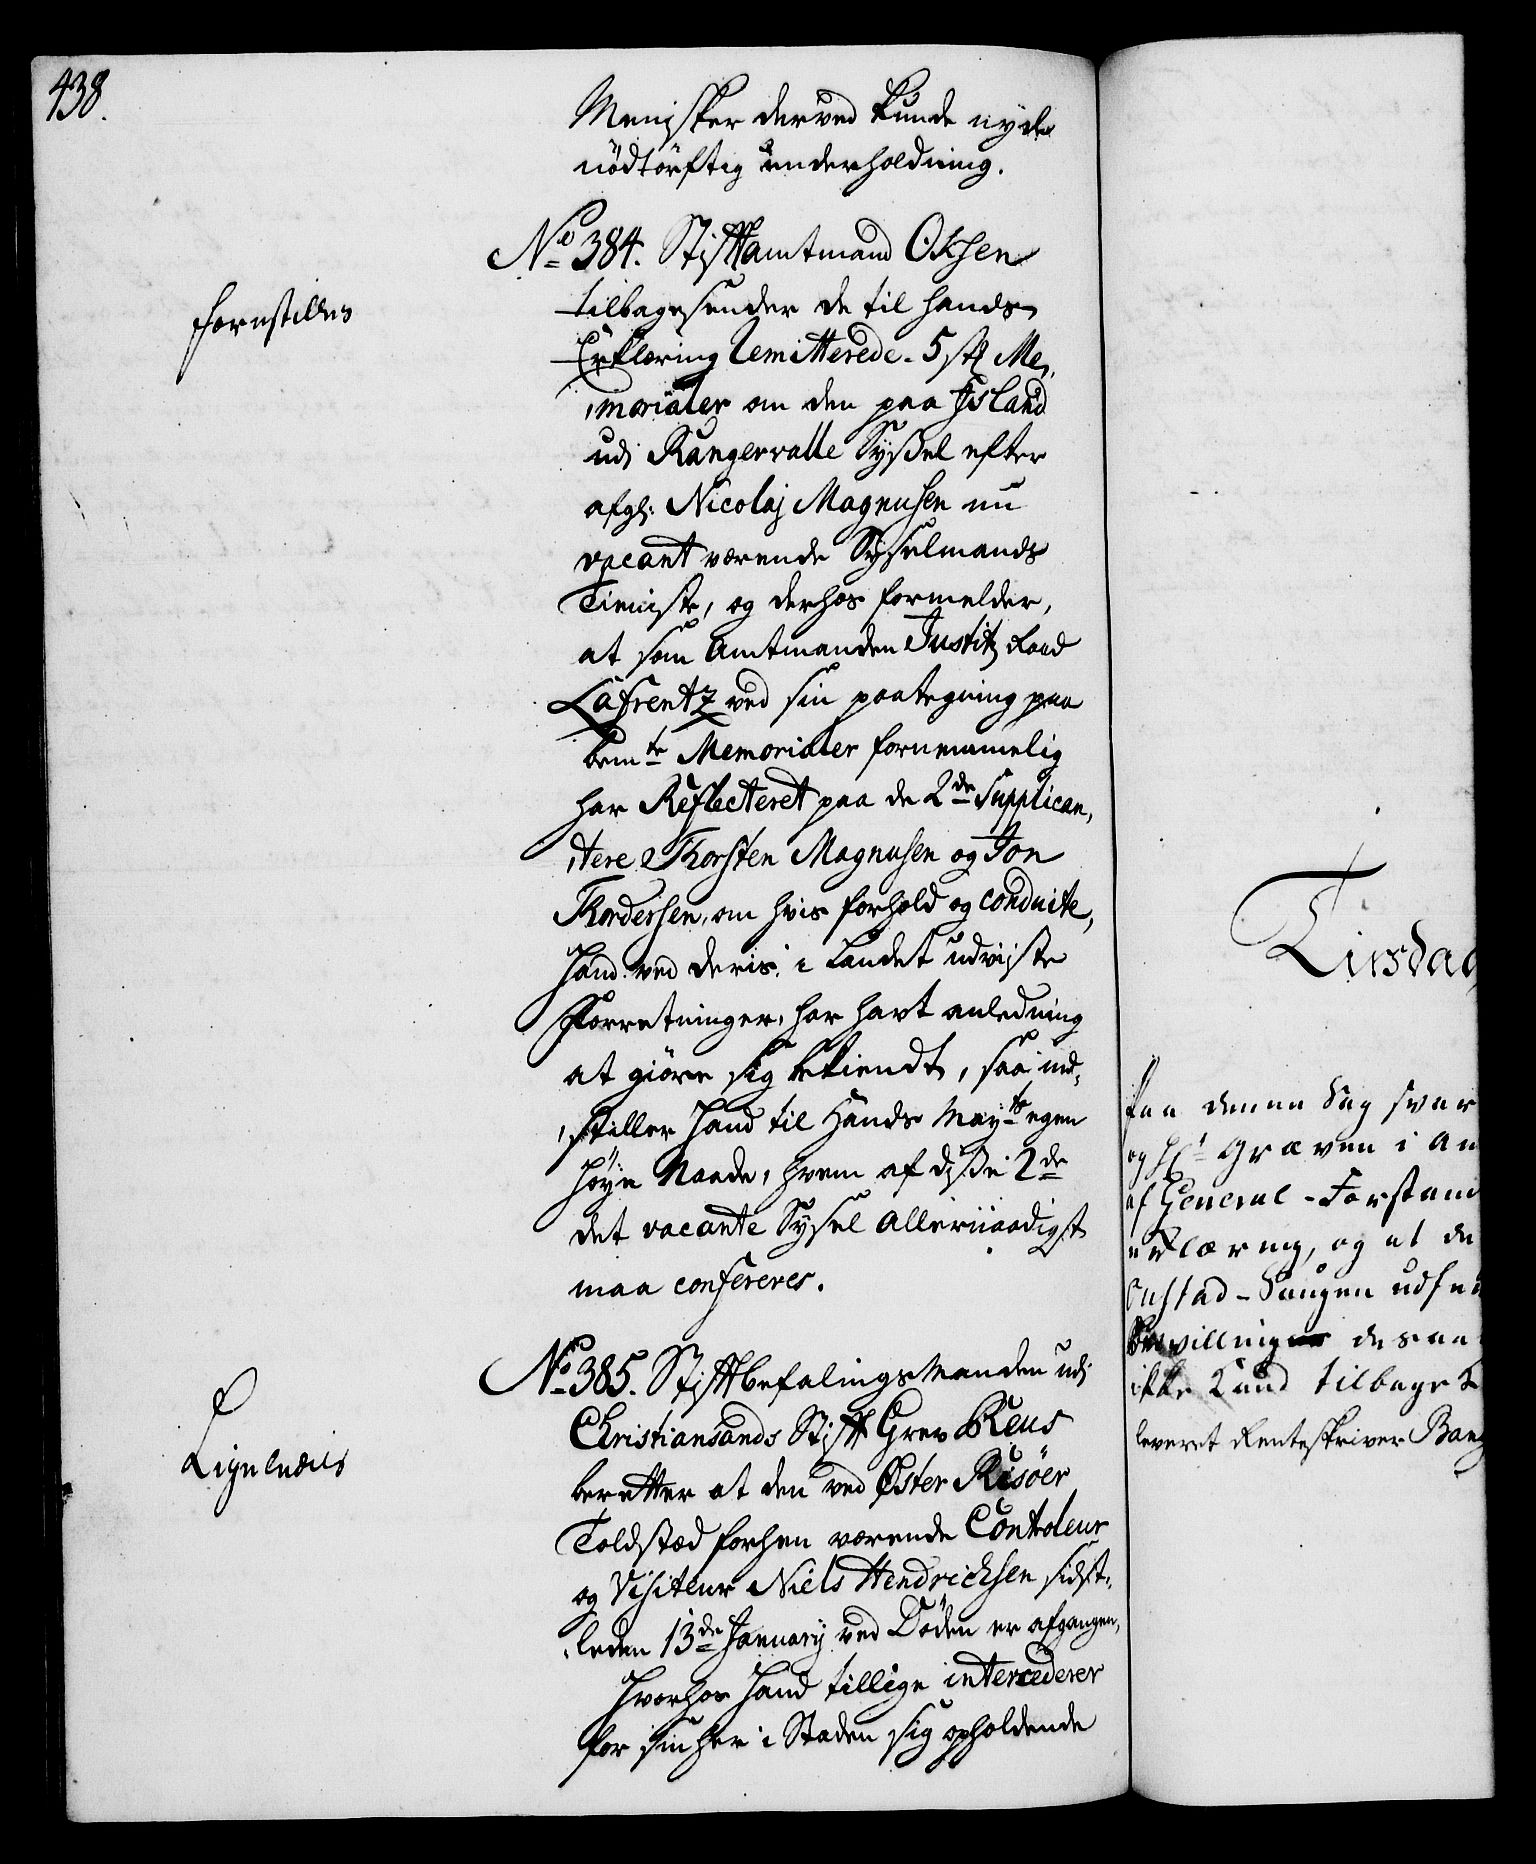 438.
Menisker derved kunde nyde
nödtörftig underholdning.
No 384. Stiftamtmand Oksen
tilbagesender de til hands
Erklæring remitterede 5 stk Me-
morialer om den paa Jsland
udj Rangervalle Syssel efter
afg: Nicolaj Magnusen nu
vacant værende Sysselmands
Tieniste, og derhos formelder,
at som Amtmanden Justitz Raad
Lafrentz ved sin paategning paa
bemte Memorialer fornemmelig
har Reflecteret paa de 2de Supplican-
tere Thorsten Magnusen og Jon
Thordersen, om hvis forhold og conduite,
Hand ved deris i Landet udviste
Forretninger, har havt anledning
at giöre sig bekiendt, saa ind-
stiller Hand til Hands Mayts egen
Höye Naade, hvem af disse 2de
det vacante Sysel Allernaadigst
maa confereres.
No 385. Stiftbefalings Manden udj
Christiansands Stift Grev Reus
beretter at den ved Øster Riisöer
Toldsted forhen værende Controleur
og Visiteur Niels Hendrichsen sidst-
leden 13de January ved Döden er afgangen,
Hvorhos Hand tillige intercederer
for sin her i Staden sig opholdende
forestilles
Ligeledes
Tirsdag
Paa denne Sag svar
og Hr Græven i An
af General-Forstam
erklæring, og at de
Onstad-Saugen udsted
Bevillinger desaa
ikke kand tilbage k
leveret Renteskriver Bang